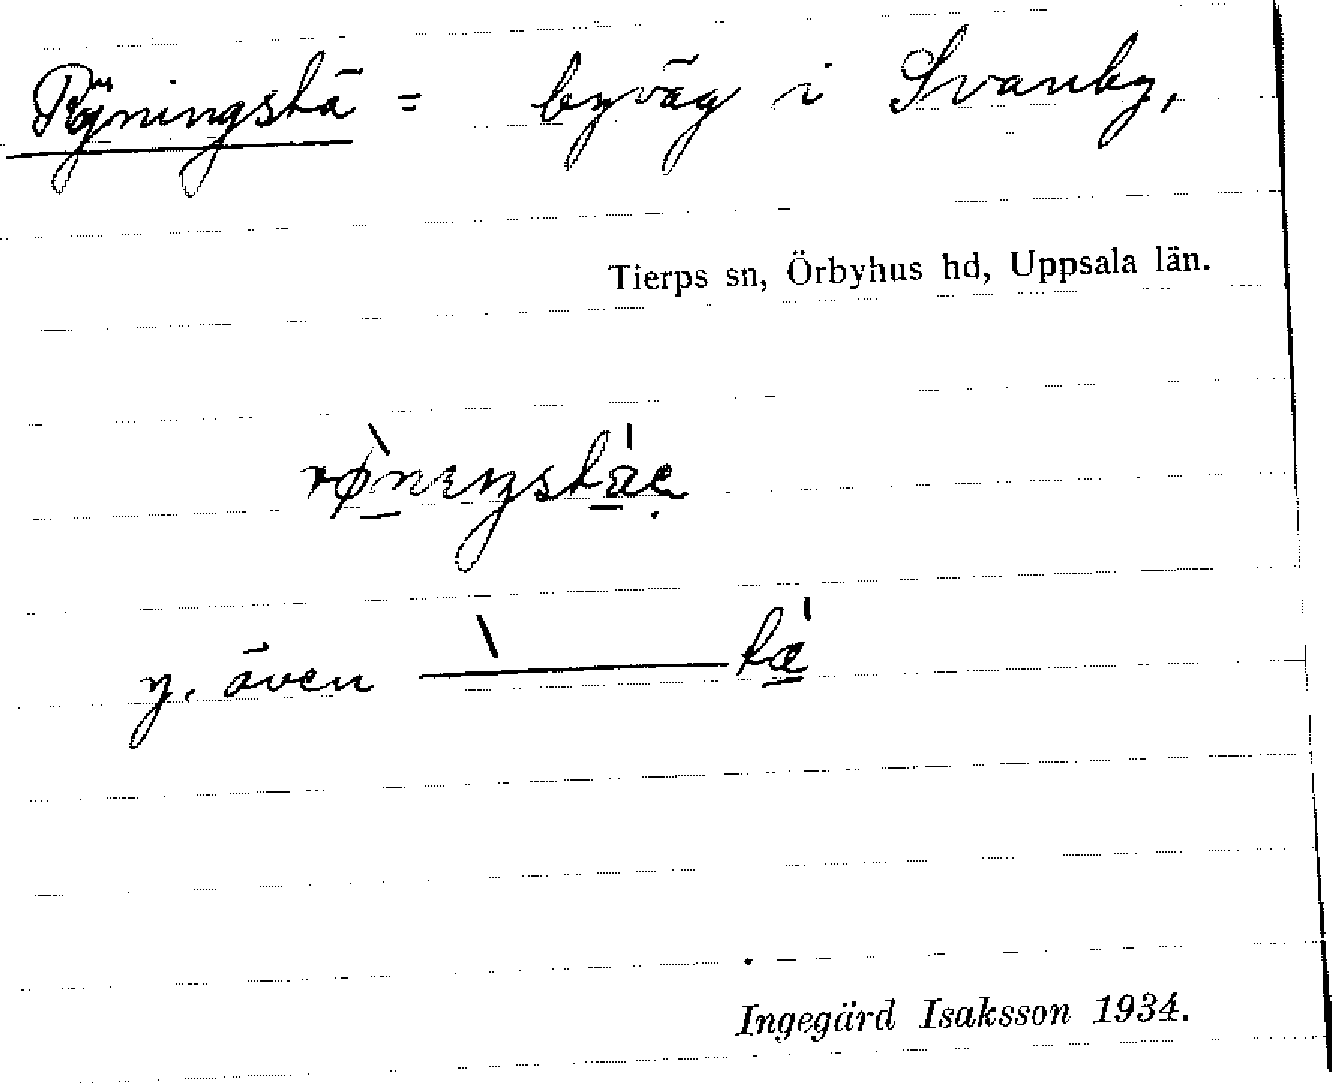 Röjningstä = byväg i Svanby,
Tierps sn, Örbyhus hd, Uppsala län.
y. även ——— tæ
Ingegärd Isaksson 1934.